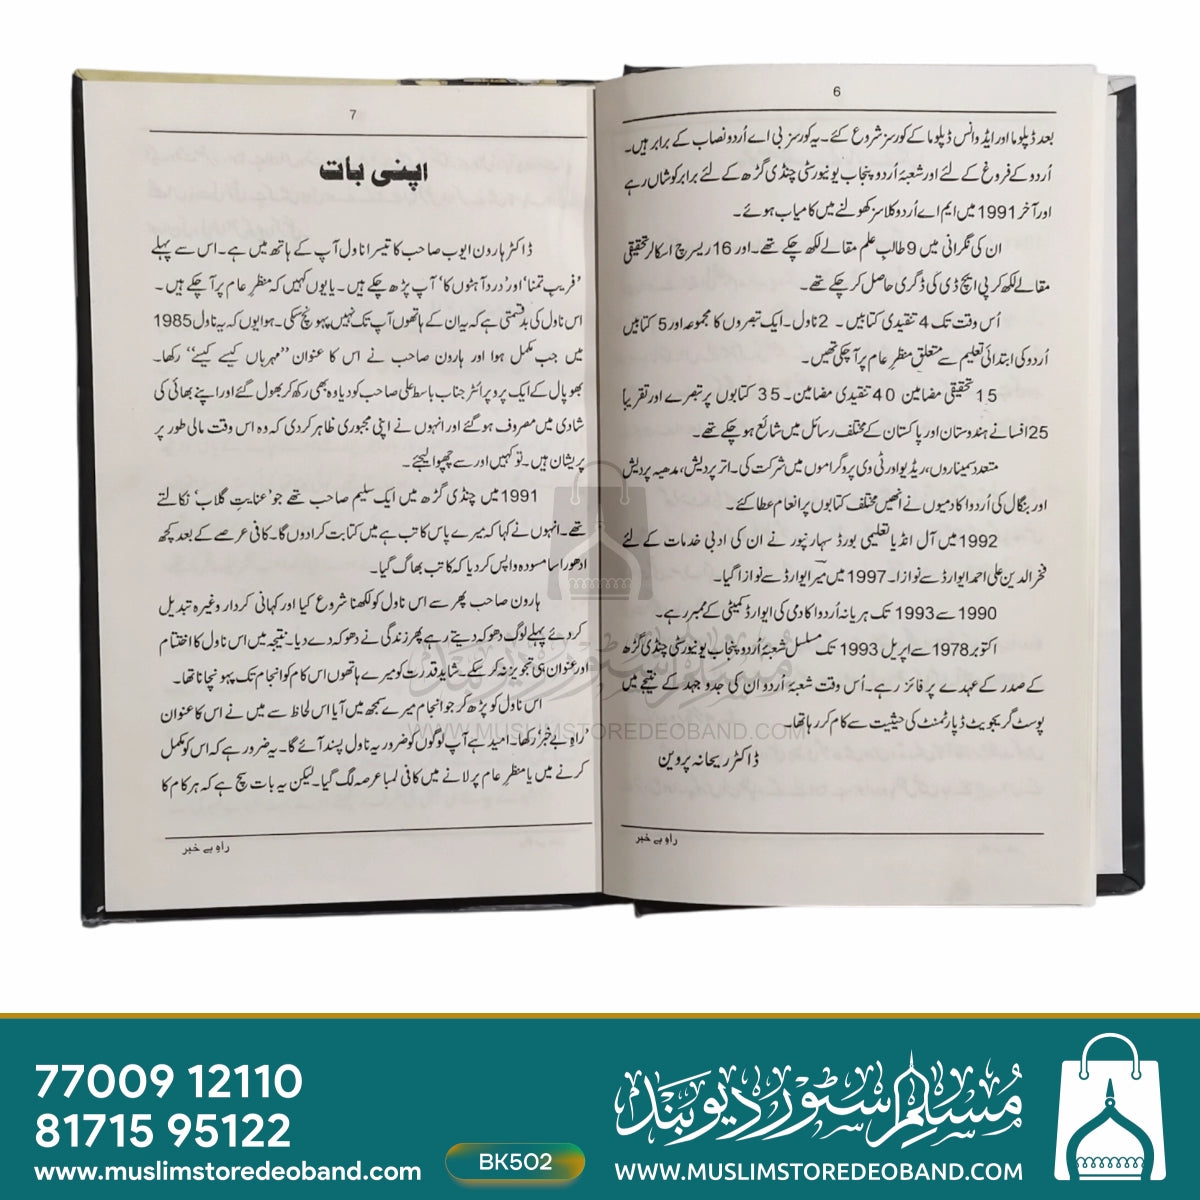 6
بعد ڈپلوما اور ایڈوانس ڈپلوما کے کورسز شروع کئے۔ یہ کورسز بی اے اُردو نصاب کے برابر ہیں۔
اُردو کے فروغ کے لئے اور شعبۂ اُردو پنجاب یونیورسٹی چنڈی گڑھ کے لئے برابر کوشاں رہے
اور آخر 1991 میں ایم اے اُردو کلاسز کھولنے میں کامیاب ہوئے۔
ان کی نگرانی میں 9 طالب علم مقالے لکھ چکے تھے۔ اور 16 ریسرچ اسکالر تحقیقی
مقالے لکھ کر پی ایچ ڈی کی ڈگری حاصل کر چکے تھے۔
اُس وقت تک 4 تنقیدی کتابیں۔ 2 ناول۔ ایک تبصروں کا مجموعہ اور 5 کتابیں
اُردو کی ابتدائی تعلیم سے متعلق منظرِ عام پر آ چکی تھیں۔
15 تحقیقی مضامین 40 تنقیدی مضامین۔ 35 کتابوں پر تبصرے اور تقریباً
25 افسانے ہندوستان اور پاکستان کے مختلف رسائل میں شائع ہو چکے تھے۔
متعدد سمیناروں، ریڈیو اور ٹی وی پروگراموں میں شرکت کی۔ اتر پردیش، مدھیہ پردیش
اور بنگال کی اُردو اکادمیوں نے انھیں مختلف کتابوں پر انعام عطا کئے۔
1992 میں آل انڈیا تعلیمی بورڈ سہارنپور نے ان کی ادبی خدمات کے لئے
فخر الدین علی احمد ایوارڈ سے نوازا۔ 1997 میں میر ایوارڈ سے نوازا گیا۔
1990 سے 1993 تک ہریانہ اُردو اکادمی کی ایوارڈ کمیٹی کے ممبر رہے۔
اکتوبر 1978 سے اپریل 1993 تک مسلسل شعبۂ اُردو پنجاب یونیورسٹی چنڈی گڑھ
کے صدر کے عہدے پر فائز رہے۔ اُس وقت شعبۂ اُردو ان کی جدوجہد کے نتیجے میں
پوسٹ گریجویٹ ڈپارٹمنٹ کی حیثیت سے کام کر رہا تھا۔
ڈاکٹر ریحانہ پروین
راہِ بے خبر
7
اپنی بات
ڈاکٹر ہارون ایوب صاحب کا تیسرا ناول آپ کے ہاتھ میں ہے۔ اس سے پہلے
’فریبِ تمنا‘ اور ’درد آہٹوں کا‘ آپ پڑھ چکے ہیں۔ یا یوں کہیں کہ منظرِ عام پر آ چکے ہیں۔
اس ناول کی بدقسمتی ہے کہ یہ ان کے ہاتھوں آپ تک نہیں پہونچ سکی۔ ہوا یوں کہ یہ ناول 1985
میں جب مکمل ہوا اور ہارون صاحب نے اس کا عنوان ’’مہرباں کیسے کیسے‘‘ رکھا۔
بھوپال کے ایک پروپرائٹر جناب باسط علی صاحب کو دیا وہ بھی رکھ کر بھول گئے اور اپنے بھائی کی
شادی میں مصروف ہو گئے اور انہوں نے اپنی مجبوری ظاہر کر دی کہ وہ اس وقت مالی طور پر
پریشان ہیں۔ تو کہیں اور سے چھپوا لیجئے۔
1991 میں چنڈی گڑھ میں ایک سلیم صاحب تھے جو ’عنایتِ گلاب‘ نکالتے
تھے۔ انہوں نے کہا کہ میرے پاس کاتب ہے میں کتابت کرا دوں گا۔ کافی عرصے کے بعد کچھ
ادھورا سا مسودہ واپس کر دیا کہ کاتب بھاگ گیا۔
ہارون صاحب پھر سے اس ناول کو لکھنا شروع کیا اور کہانی کردار وغیرہ تبدیل
کر دئے پہلے لوگ دھوکہ دیتے رہے پھر زندگی نے دھوکہ دے دیا۔ نتیجہ میں اس ناول کا اختتام
اور عنوان ہی تجویز نہ کر سکے۔ شاید قدرت کو میرے ہاتھوں اس کام کو انجام تک پہونچانا تھا۔
اس ناول کو پڑھ کر جو انجام میرے سمجھ میں آیا اس لحاظ سے میں نے اس کا عنوان
’راہِ بے خبر‘ رکھا۔ امید ہے آپ لوگوں کو ضرور یہ ناول پسند آئے گا۔ یہ ضرور ہے کہ اس کو مکمل
کرنے میں یا منظرِ عام پر لانے میں کافی لمبا عرصہ لگ گیا۔ لیکن یہ بات سچ ہے کہ ہر کام کا
راہِ بے خبر
مسلم سٹور دیوبند
WWW.MUSLIMSTOREDEOBAND.COM
77009 12110
81715 95122
www.muslimstoredeoband.com
BK502
مسلم سٹور دیوبند
WWW.MUSLIMSTOREDEOBAND.COM